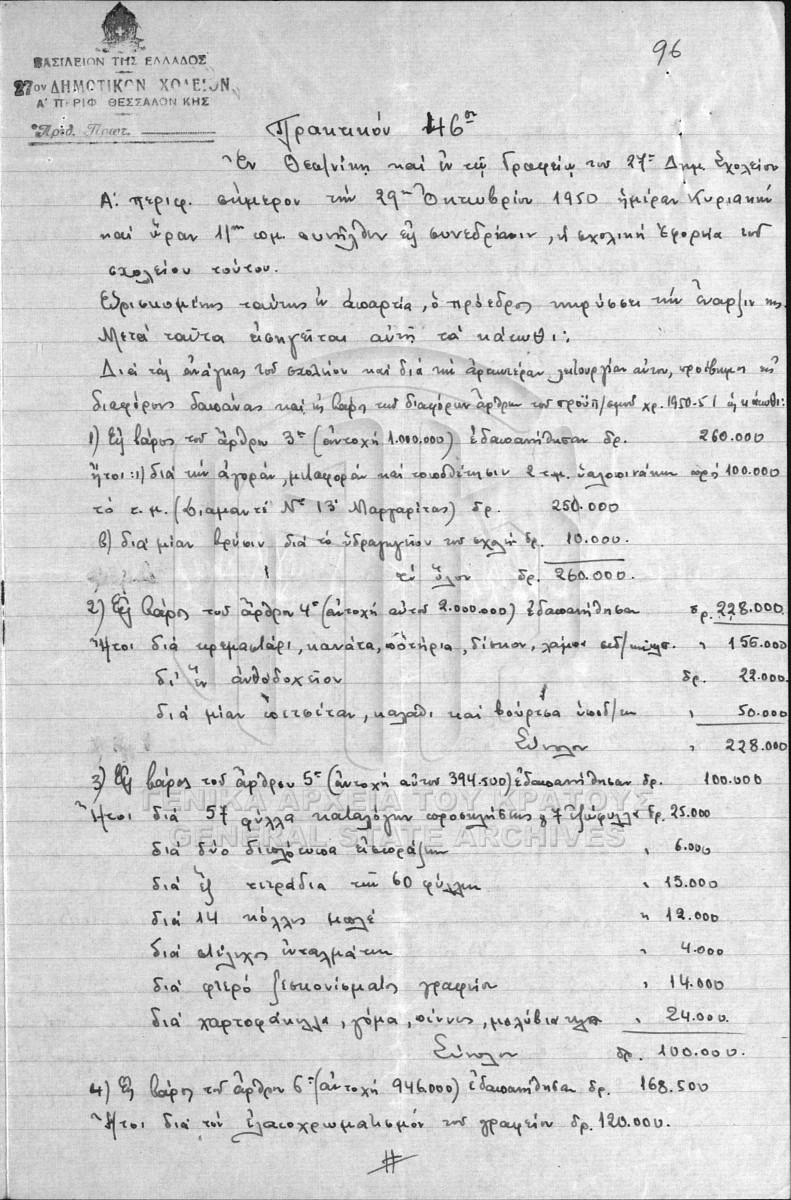 96
ΒΑΣΙΛΕΙΟΝ ΤΗΣ ΕΛΛΑΔΟΣ
27ον ΔΗΜΟΤΙΚΟΝ ΣΧΟΛΕΙΟΝ
Α' ΠΕΡΙΦ. ΘΕΣΣΑΛΟΝΙΚΗΣ
Ἀριθ. Πρωτ.
Πρακτικόν 46ον
Ἐν Θεσ/νίκῃ καί ἐν τῷ Γραφείῳ του 27ου Δημ. Σχολείου
Α: περιφ. σήμερον τήν 29ην Ὀκτωβρίου 1950 ἡμέραν Κυριακήν
καί ὥραν 11ην π.μ. συνῆλθεν εἰς συνεδρίασιν, ἡ σχολική Ἐφορεία τοῦ
σχολείου τούτου.
Εὑρισκομένης ταύτης ἐν ἀπαρτίᾳ, ὁ πρόεδρος κηρύσσει τήν ἔναρξιν της.
Μετά ταῦτα εἰσηγεῖται αὐτῇ τά κάτωθι:
Διά τάς ἀνάγκας τοῦ σχολείου καί διά τήν λειτουργίαν αὐτοῦ, προέβημεν εἰς
διαφόρους δαπάνας καί εἰς βάρος τῶν διαφόρων ἄρθρων τοῦ προϋπ/σμοῦ χρ. 1950-51 ὡς κάτωθι:
1) Εἰς βάρος τοῦ ἄρθρου 3ου (ἀντοχή 1.000,000) ἐδαπανήθησαν δρ. 260.000
ἤτοι: 1) διά τήν ἀγοράν, μεταφοράν καί τοποθέτησιν 2 τ.μ. ὑαλοπινάκων πρός 100.000
τό τ.μ. (Διαμαντῆ Νο 13 Μαργαρίτας) δρ. 250.000
β) διά μίαν βρύσιν διά τό ὑδραγωγεῖον τοῦ σχολ. δρ. 10.000.
τό ὅλον δρ. 260.000.
2) Εἰς βάρος τοῦ ἄρθρου 4ου (ἀντοχή αὐτοῦ 2.000.000) ἐδαπανήθησαν δρ. 228.000
Ἤτοι διά κρεμαστάρι, κανάτα, ποτήρια, δίσκον, " 156.000
δι' ἕν ἀνθοδοχεῖον δρ. 22.000
διά μίαν πετσέταν, καλάθι καί βούρτσα ὑποδ/των " 50.000
Σύνολον " 228.000
3) Εἰς βάρος τοῦ ἄρθρου 5ου (ἀντοχή αὐτοῦ 394.500) ἐδαπανήθησαν δρ. 100.000
Ἤτοι διά 57 φύλλα καταλόγων προσκλήσεως & 7 ἐξώφυλλα δρ. 25.000
διά δύο διπλότυπα εἰσπράξεων " 6.000
διά ἕξ τετράδια τῶν 60 φύλλων " 15.000
διά 14 κόλλες μπλέ " 12.000
διά στέλεχος ἐνταλμάτων " 4.000
διά φτερό ξεσκονίσματος γραφείου " 14.000
διά χαρτοφάκελλα, γόμα, πέννες, μολύβια κλπ " 24.000.
Σύνολον δρ. 100.000.
4) Εἰς βάρος τοῦ ἄρθρου 6ου (ἀντοχή 946.000) ἐδαπανήθησαν δρ. 168.500
Ἤτοι διά τόν ἐλαιοχρωματισμόν τοῦ γραφείου δρ. 120.000.
ΓΕΝΙΚΑ ΑΡΧΕΙΑ ΤΟΥ ΚΡΑΤΟΥΣ
GENERAL STATE ARCHIVES